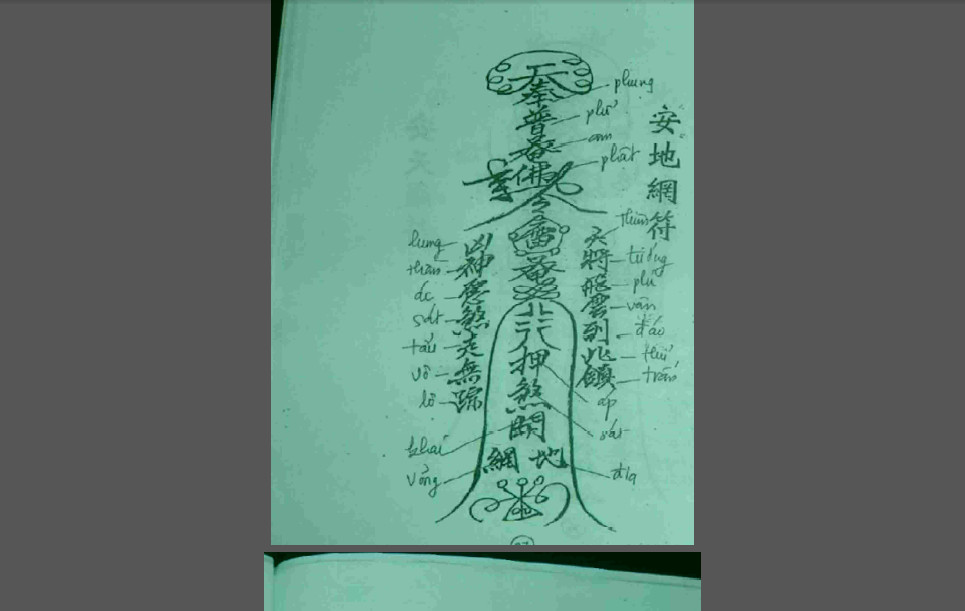 安地網符
奉
phụng
普
phổ
菴
am
佛
phật
雷
天將飛雲到此鎮
tướng
phi
vân
đáo
thử
trấn
凶神惡煞走無踪
hung
thần
ác
sát
tẩu
vô
押
áp
煞
sát
開
khai
網 地
võng
địa